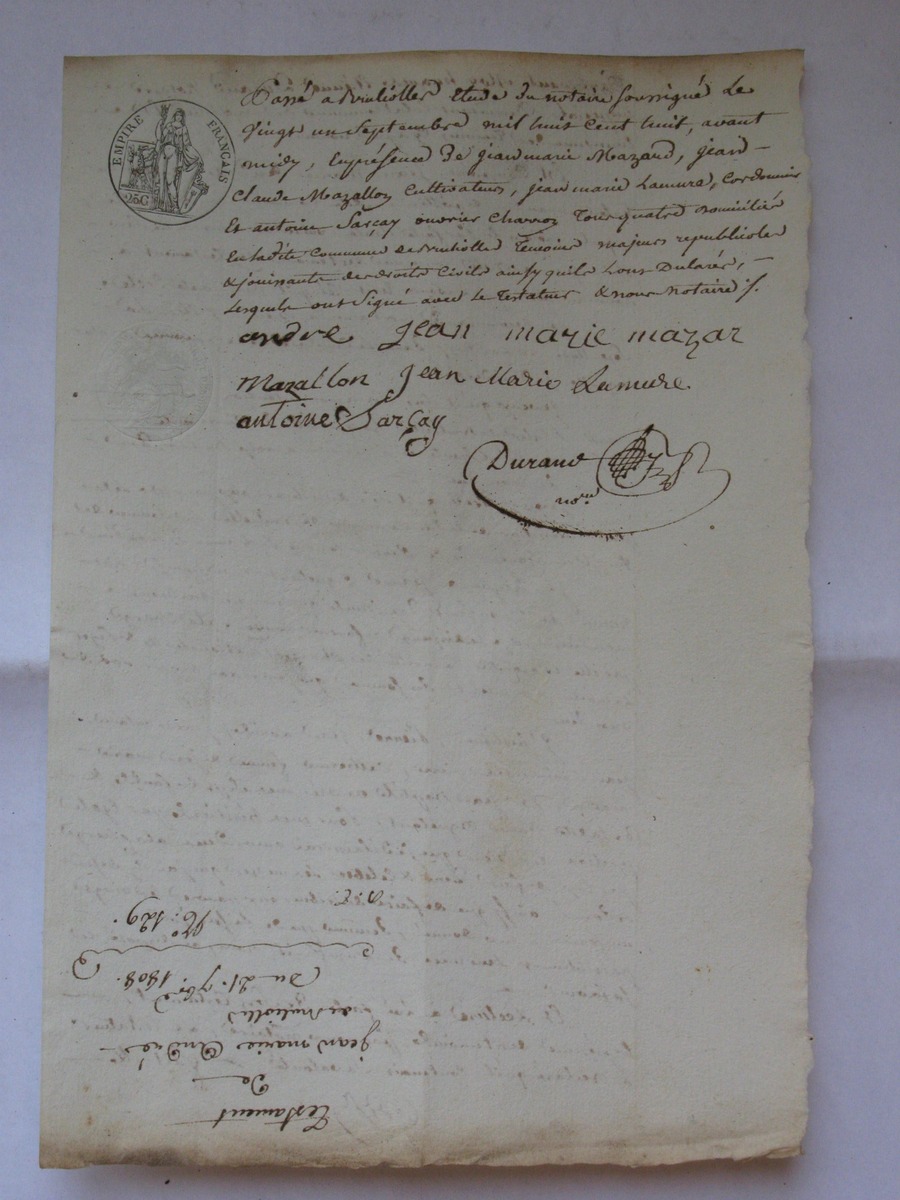 EMPIRE FRANÇAIS
25C
Passé a Brulliolles etude du notaire soussigné Le
Vingt un Septembre mil huit Cent huit, avant
midy, En présence de jean marie Mazard, jean
Claude Mazallon Cultivateurs, jean marie Lamure, Cordonnier
Et antoine Sarçay ouvrier Charron Tous quatre Domiciliés
En ladite Commune de Brulliolles Temoins majeurs republicoles
& jouissants des droits Civils ainsy quils L'ont Déclaré, –
Lesquels ont Signé avec Le Testateur & nous notaire ./.
andre jean marie mazar
Mazallon Jean Marie Lamure
antoine Sarçay
Durand
nore
Testament
De
jean marie André
de Brulliolles
Du 21. 7bre 1808.
No. 129.